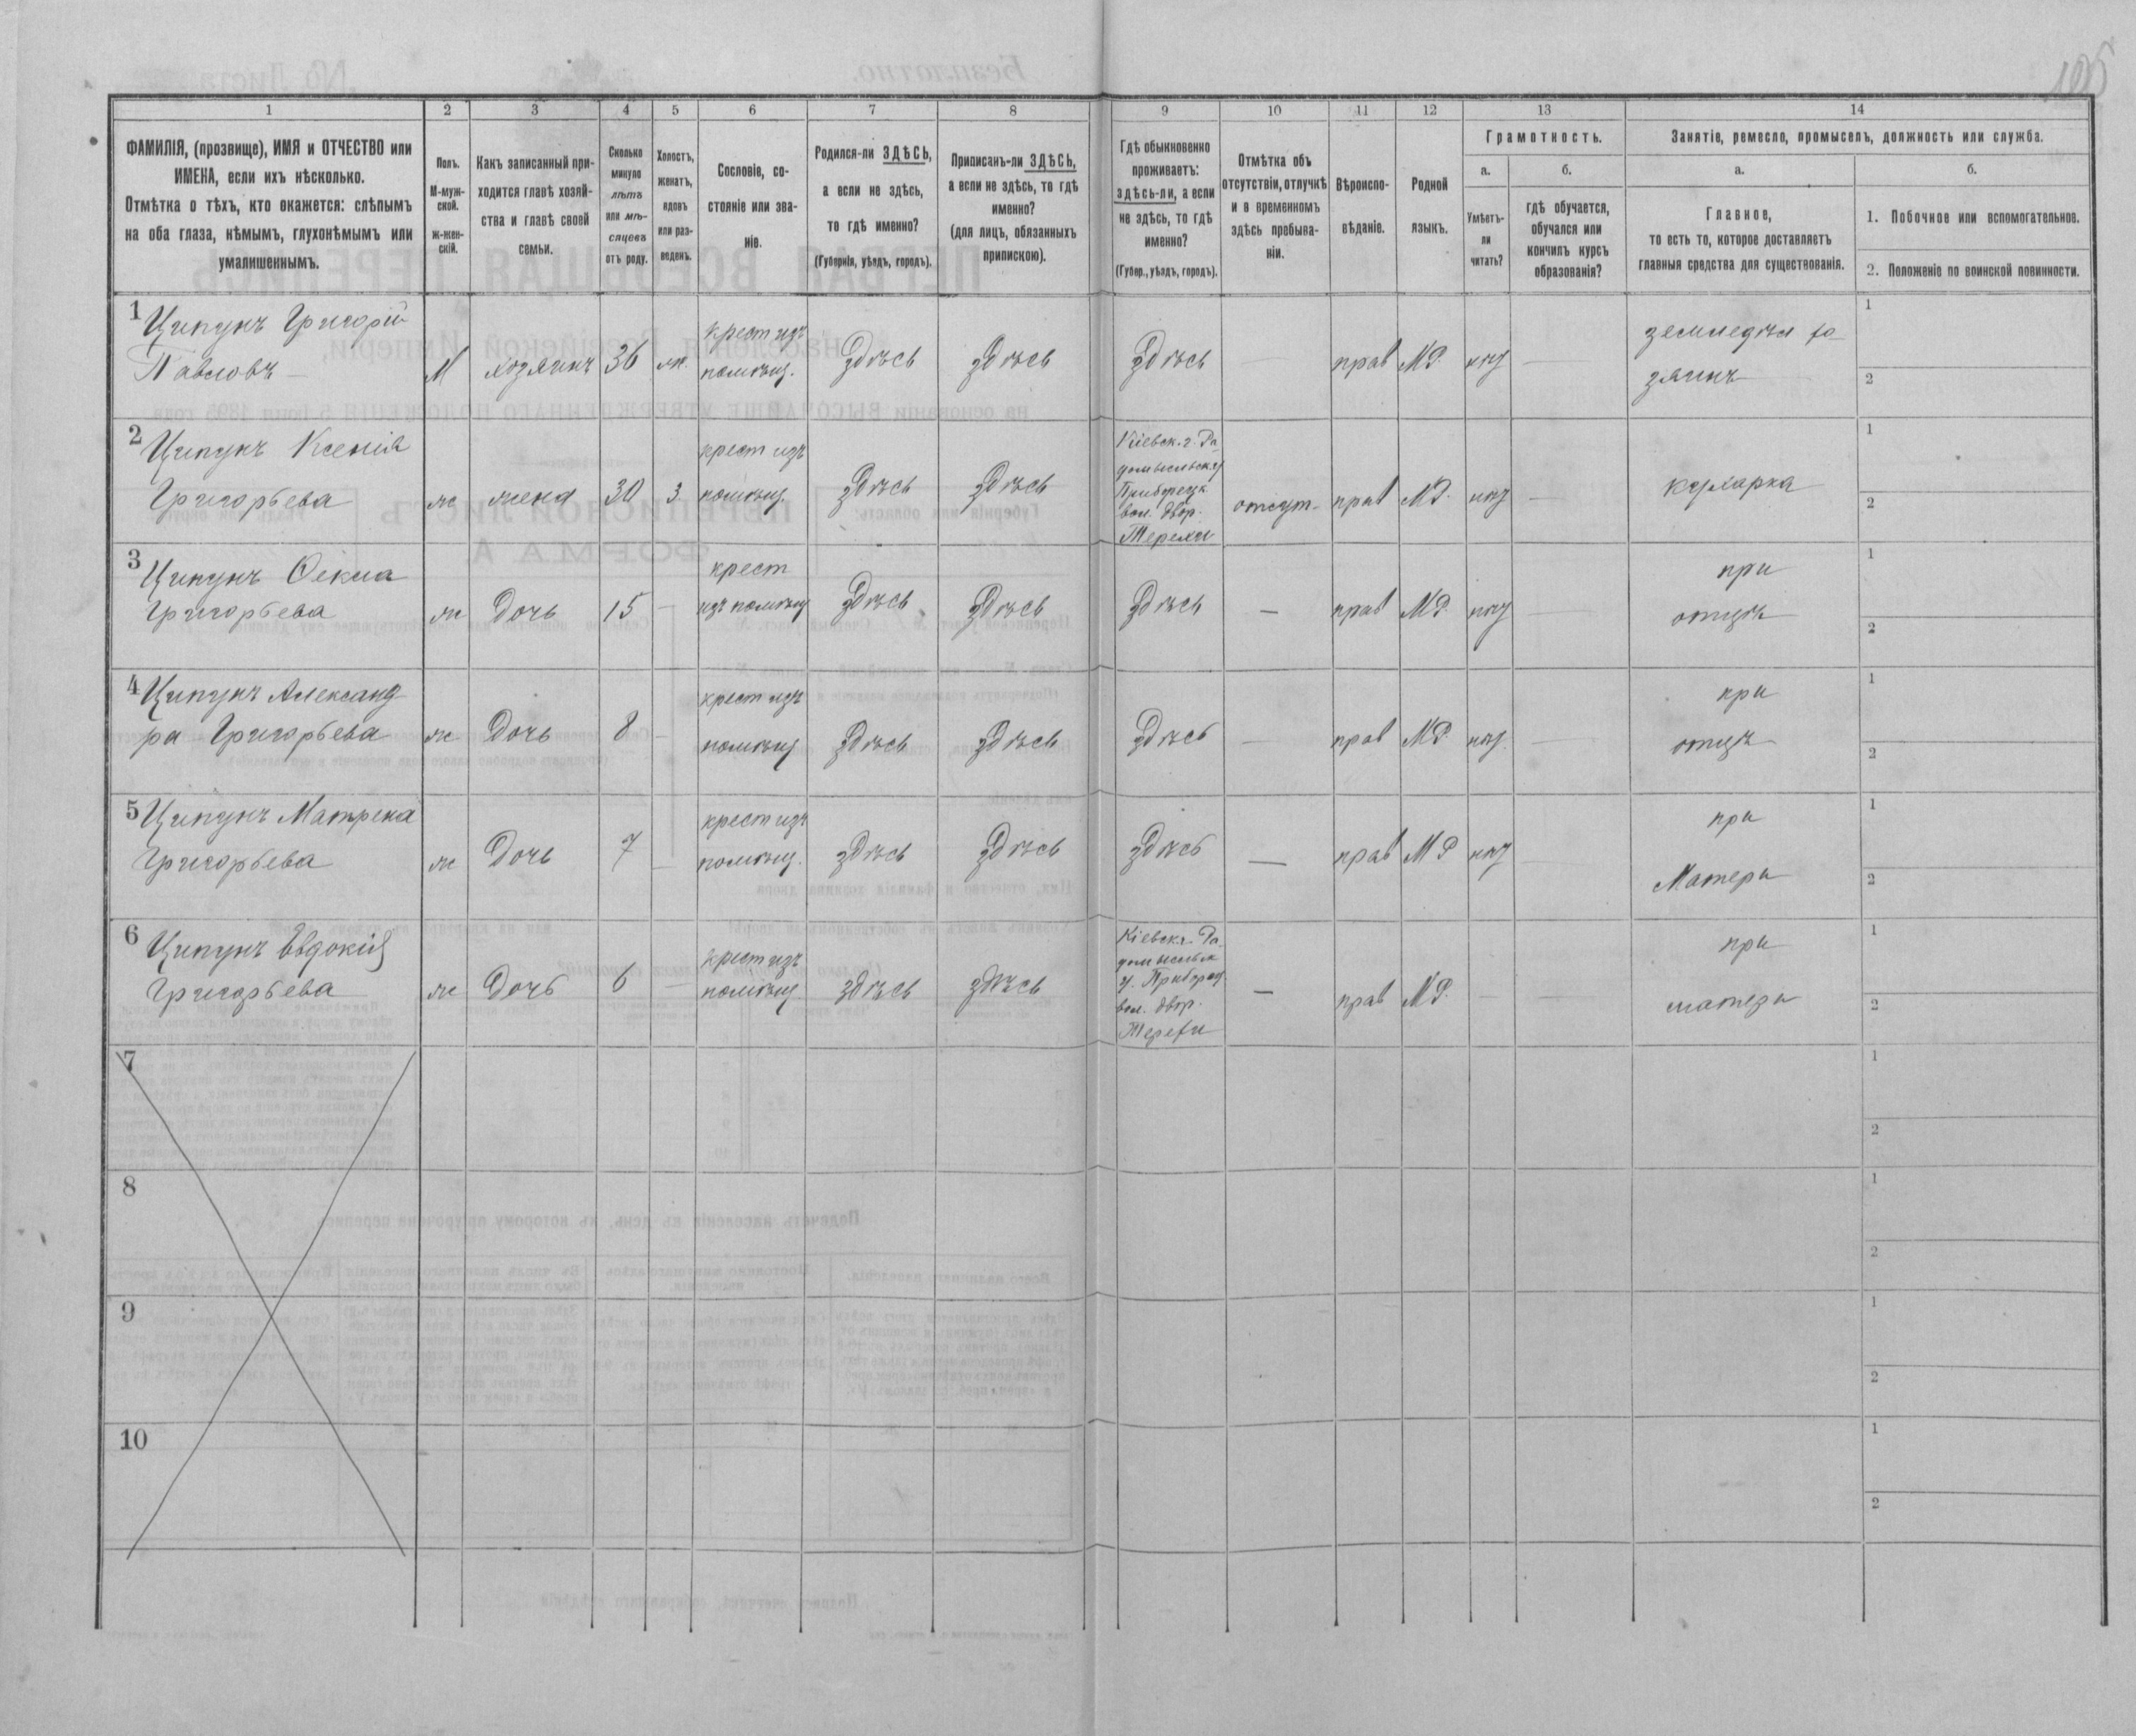 105
1 2 3 4 5 6 7 8 9 10 11 12 13 14
ФАМИЛІЯ, (прозвище), ИМЯ и ОТЧЕСТВО или
ИМЕНА, если ихъ нѣсколько.
Отмѣтка о тѣхъ, кто окажется: слѣпымъ
на оба глаза, нѣмымъ, глухонѣмымъ или
умалишеннымъ.
Полъ.
М-муж-
ской.
Ж-жен-
скій.
Какъ записанный при-
ходится главѣ хозяй-
ства и главѣ своей
семьи.
Сколько
минуло
лѣтъ
или мѣ-
сяцевъ
отъ роду.
Холостъ,
женатъ,
вдовъ
или раз-
веденъ.
Сословіе, со-
стояніе или зва-
ніе.
Родился-ли ЗДѢСЬ,
а если не здѣсь,
то гдѣ именно?
(Губернія, уѣздъ, городъ).
Приписанъ-ли ЗДѢСЬ,
а если не здѣсь, то гдѣ
именно?
(для лицъ, обязанныхъ
припискою).
Гдѣ обыкновенно
проживаетъ:
здѣсь-ли, а если
не здѣсь, то гдѣ
именно?
(Губер., уѣздъ, городъ).
Отмѣтка объ
отсутствіи, отлучкѣ
и о временномъ
здѣсь пребыва-
ніи.
Вѣроиспо-
вѣданіе.
Родной
языкъ.
Грамотность.
а.
Умѣетъ-
ли
читать?
б.
гдѣ обучается,
обучался или
кончилъ курсъ
образованія?
Занятіе, ремесло, промыселъ, должность или служба.
а.
Главное,
то есть то, которое доставляетъ
главныя средства для существованія.
б.
1. Побочное или вспомогательное.
2. Положеніе по воинской повинности.
1 Ципунъ Григорій
Павловъ
М
хозяинъ
36
ж.
крест изъ
помѣщ.
здѣсь
здѣсь
здѣсь
прав
М.Р.
нѣт
земледѣл хо
зяинъ
1
2
2 Ципунъ Ксенія
Григорьева
ж
жена
30
з.
крест изъ
помѣщ.
здѣсь
здѣсь
Кіевск. г. Ра
домысльск у
Приборск
вол. двор.
Терехи
отсут
прав
М.Р.
нѣт
кухарка
1
2
3 Ципунъ Ѳекла
Григорьева
ж
Дочь
15
крест
изъ помѣщ
здѣсь
здѣсь
здѣсь
прав
М.Р.
нѣт
при
отцѣ
1
2
4 Ципунъ Александ
ра Григорьева
ж
Дочь
8
крест изъ
помѣщ
здѣсь
здѣсь
здѣсь
прав
М.Р.
нѣт
при
отцѣ
1
2
5 Ципунъ Матрена
Григорьева
ж
Дочь
7
крест изъ
помѣщ.
здѣсь
здѣсь
здѣсь
прав
М Р
нѣт
при
Матери
1
2
6 Ципунъ Евдокія
Григорьева
ж
Дочь
6
крест изъ
помѣщ.
здѣсь
здѣсь
Кіевск. г. Ра
домысльск
у. Приборск
вол. двор.
Терехи
прав
М.Р.
при
матери
1
2
7
1
2
8
1
2
9
1
2
10
1
2